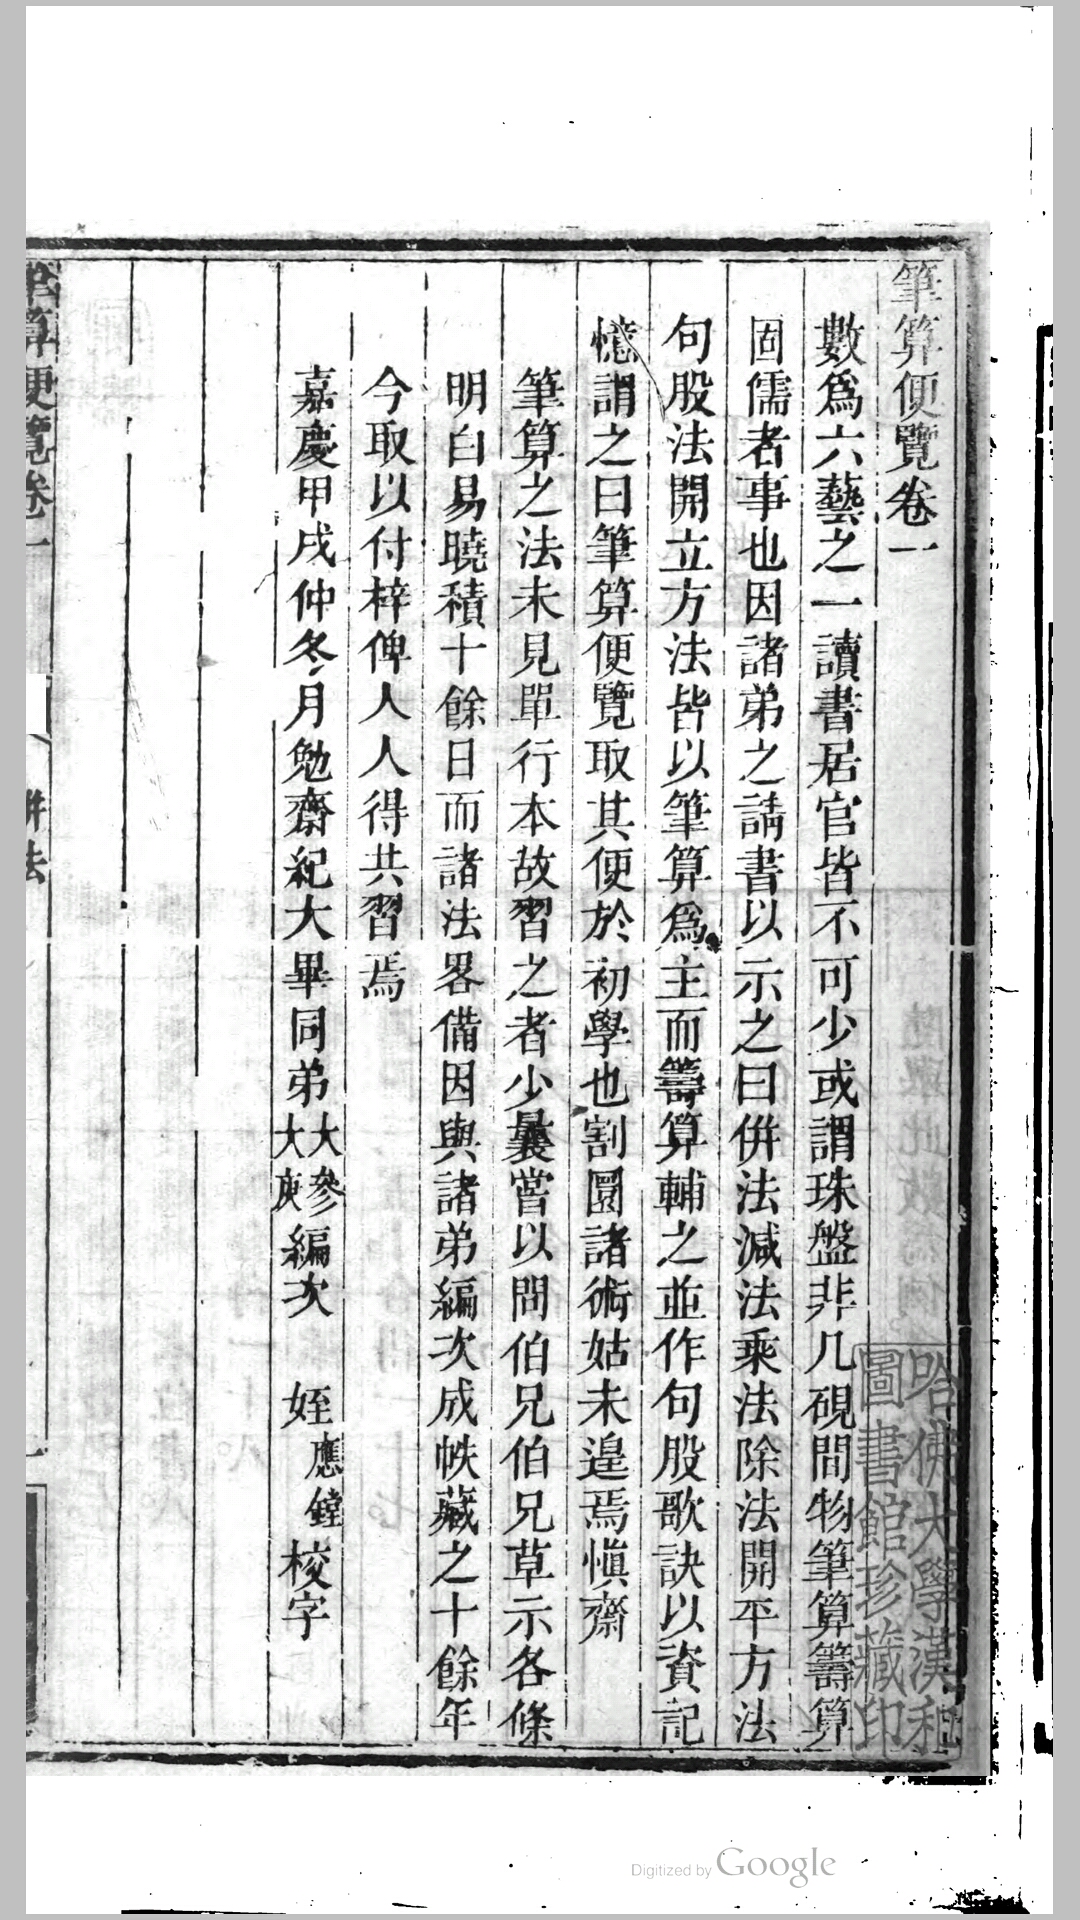 筆算便覽卷一
數爲六藝之一讀書居官皆不可少或謂珠盤非几硯間物筆算籌算
固儒者事也因諸弟之請書以示之曰併法減法乘法除法開平方法
句股法開立方法皆以筆算爲主而籌算輔之並作句股歌訣以資記
憶謂之曰筆算便覽取其便於初學也割圜諸術姑未遑焉愼齋
筆算之法未見單行本故習之者少曩嘗以問伯兄伯兄草示各條
明白易曉積十餘日而諸法畧備因與諸弟編次成帙藏之十餘年
今取以付梓俾人人得共習焉
嘉慶甲戌仲冬月勉齋紀大畢同弟大參大庚編次 姪應鏜校字
筆算便覽卷一 併法 一
哈佛大學漢和
圖書館珍藏印
Digitized by Google